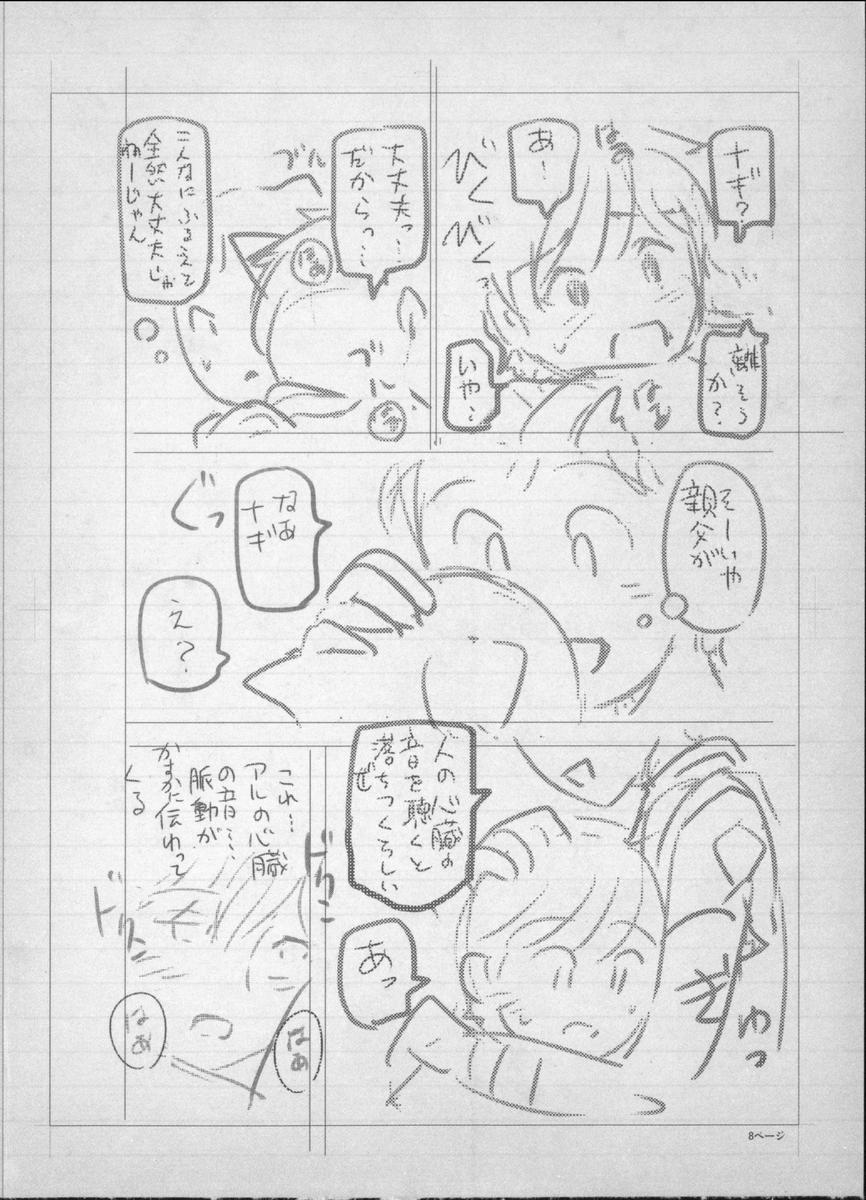 ナギ?
はあ
あ…
離そう
か?
いや…
はあ
びく
びくっ
大丈夫っ…
だからっ…
ブル
はぁ
ブル
はぁ
こんなにふるえて
全然大丈夫じゃ
ねーじゃん
そーいや
親父が
なあ
ナギ
ぐっ
え?
人の心臓の
音を聴くと
落ちつくらしい
ぜ
ぎゅっ
あっ
これ…
アルの心臓
の音…
脈動が
かすかに伝わって
くる
ドクン
ドクン
はぁ
はぁ
8ページ